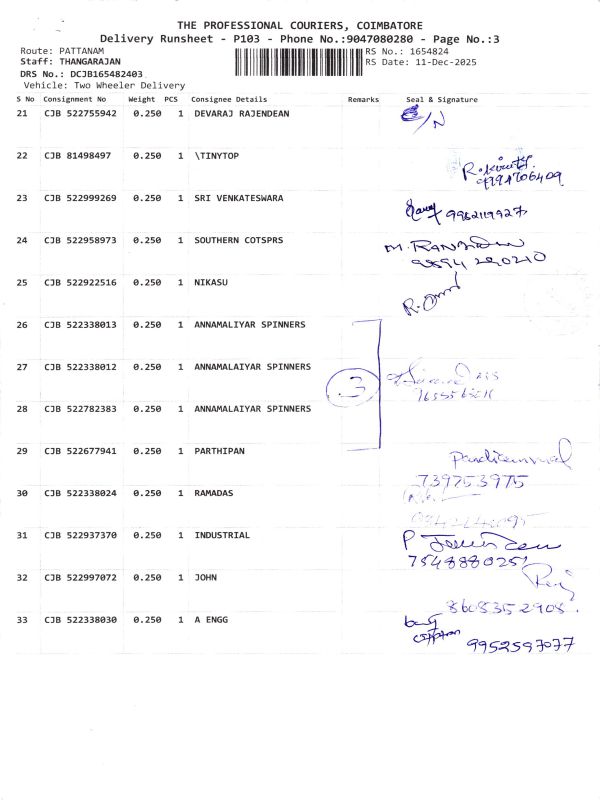 THE PROFESSIONAL COURIERS, COIMBATORE
Delivery Runsheet - P103 - Phone No.:9047080280 - Page No.:3
Route: PATTANAM RS No.: 1654824
Staff: THANGARAJAN RS Date: 11-Dec-2025
DRS No.: DCJB165482403
Vehicle: Two Wheeler Delivery
S No Consignment No Weight PCS Consignee Details Remarks Seal & Signature
21 CJB 522755942 0.250 1 DEVARAJ RAJENDEAN
22 CJB 81498497 0.250 1 \TINYTOP
23 CJB 522999269 0.250 1 SRI VENKATESWARA 9962119927
24 CJB 522958973 0.250 1 SOUTHERN COTSPRS
9894 290210
25 CJB 522922516 0.250 1 NIKASU
26 CJB 522338013 0.250 1 ANNAMALIYAR SPINNERS
27 CJB 522338012 0.250 1 ANNAMALAIYAR SPINNERS
3
28 CJB 522782383 0.250 1 ANNAMALAIYAR SPINNERS
29 CJB 522677941 0.250 1 PARTHIPAN
739753975
30 CJB 522338024 0.250 1 RAMADAS
31 CJB 522937370 0.250 1 INDUSTRIAL
7548880251
32 CJB 522997072 0.250 1 JOHN
8608352908.
33 CJB 522338030 0.250 1 A ENGG
9952597077